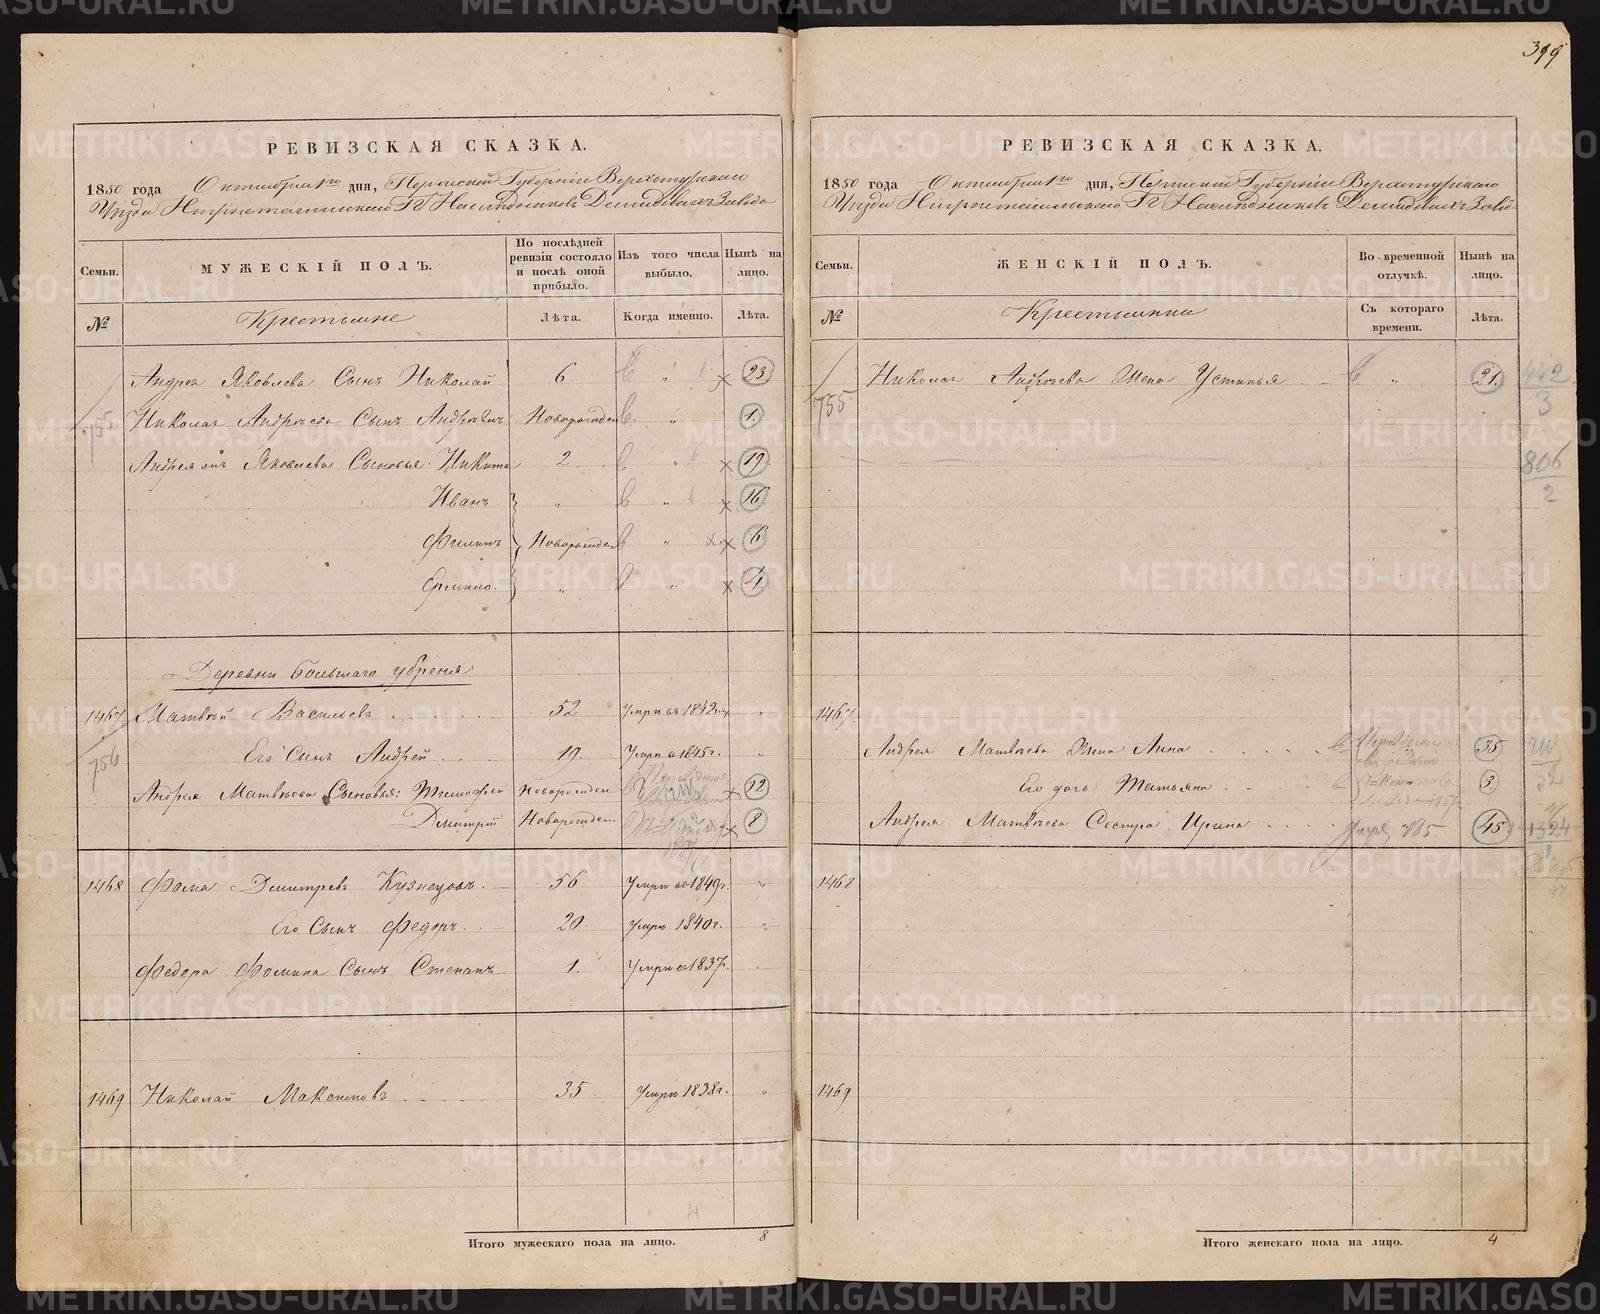 399
РЕВИЗСКАЯ СКАЗКА.
1850 года Октября 1го дня, Пермской Губернiи Верхотурскаго
Уезда Нижнетагильскаго Гг Наследниковъ Демидовыхъ Завода
Семьи.
МУЖЕСКIЙ ПОЛЪ.
По послѣдней ревизiи состояло и послѣ оной прибыло.
Изъ того числа выбыло.
Нынѣ на лицо.
№
Крестьяне
Лѣта.
Когда именно.
Лѣта.
755
Андрея Яковлева Сынъ Николай 6 " 23
Николая Андреева Сынъ Андрей Новорожден " 1
Андрея Яковлева Сыновья: Никита 2 " 19
Иванъ " " 16
Филипъ Новорожден " 6
Ермило. " " 4
Деревни Большаго
1467 Матвей Васильевъ 52 умре въ 1842 "
756
Его Сынъ Андрей 19. умре в 1845г. "
Андрея Матвеева Сыновья: Тимофей Новорожден 12
Дмитрiй Новорожден 8
1468 Фома Дмитревъ Кузнецовъ. 56 умре в 1849г. "
Его Сынъ Федоръ. 20. умре 1840г. "
Федора Фомина Сынъ Степанъ 1. умре в 1837г.
1469 Николай Максимовъ 35 умре 1838г. "
Итого мужескаго пола на лицо. 8
РЕВИЗСКАЯ СКАЗКА.
1850 года Октября 1го дня, Пермской Губернiи Верхотурскаго
Уезда Нижнетагильскаго Гг Наследниковъ Демидовыхъ Завод
Семьи.
ЖЕНСКIЙ ПОЛЪ.
Во временной отлучкѣ.
Нынѣ на лицо.
№
Крестьянки
Съ котораго времени.
Лѣта.
755
Николая Андреева Жена Устинья " 21.
442
3
806
2
1467.
Андрея Матвеева Жена Анна 35
Его дочь Татьяна 3
Андрея Матвеева Сестра Ирина 45
1324
1468
1469
Итого женскаго пола на лицо. 4
METRIKI.GASO-URAL.RU